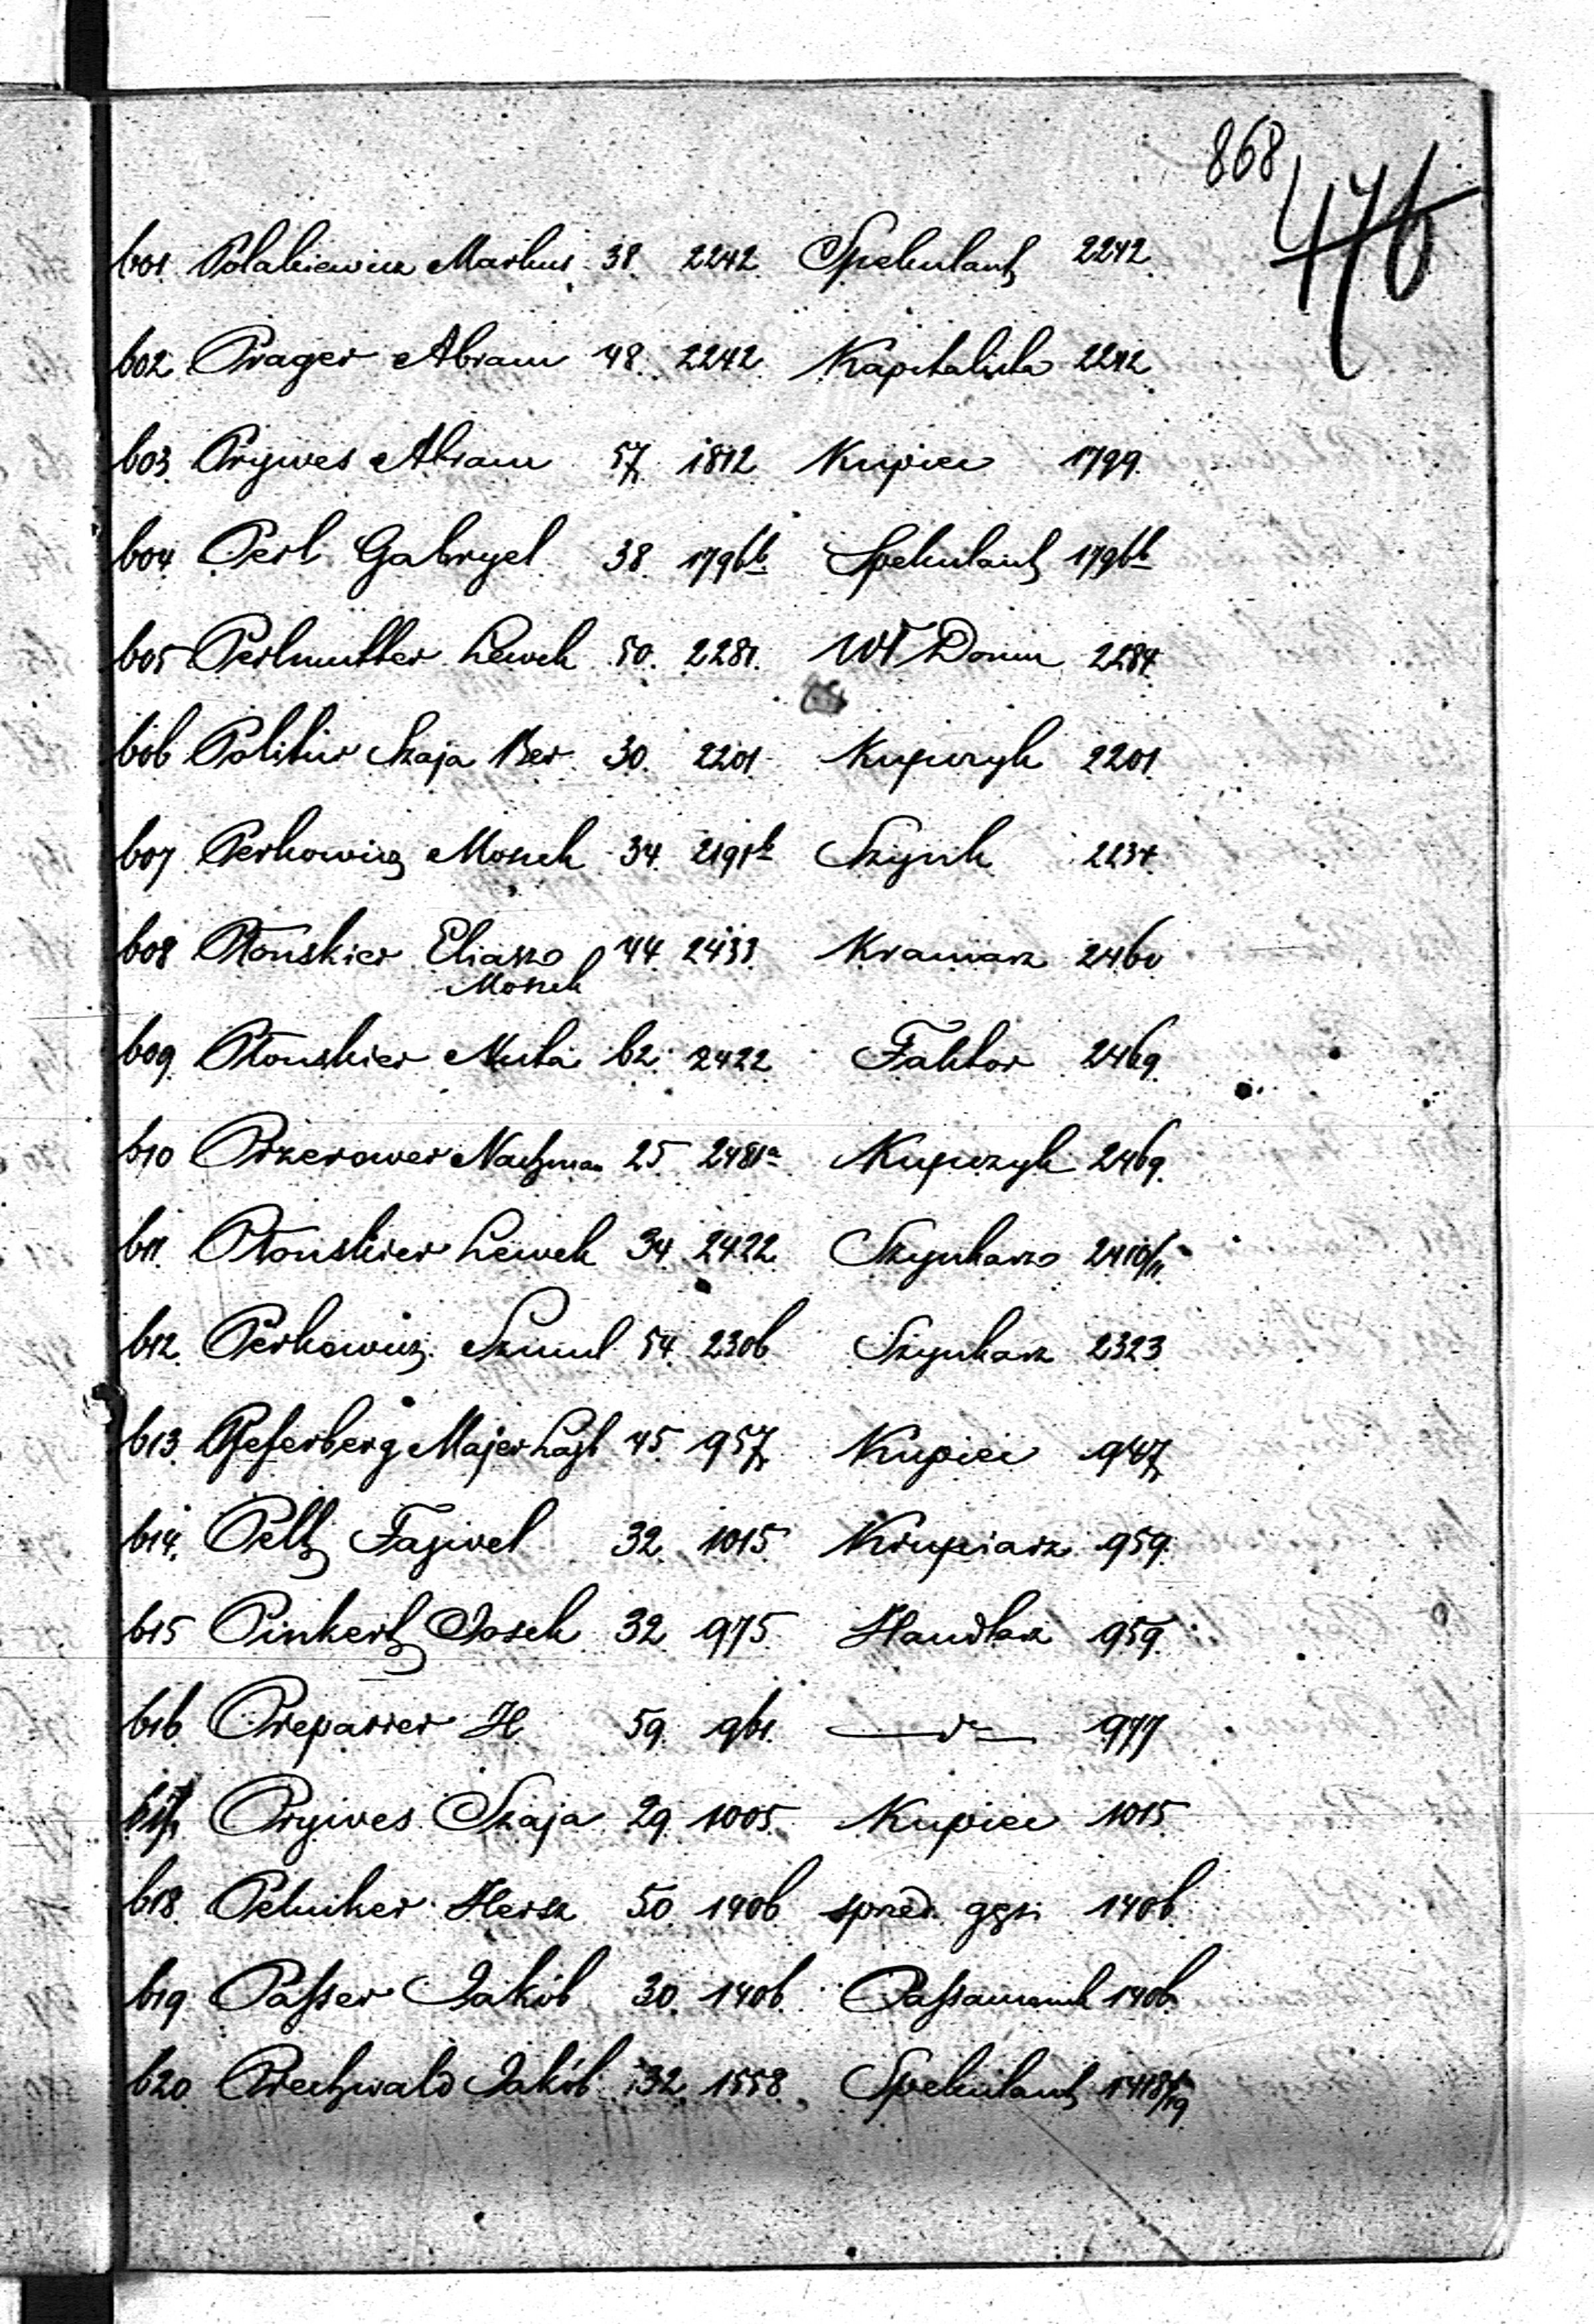 868
476
601. Polakiewicz Markus 38. 2242. Spekulant 2242.
602. Prager Abram 48. 2242. Kapitalista 2242
603. Prywes Abram 57. 1812 Kupiec 1799.
604. Perl Gabryel 38. 1796b. Spekulant 1796b
605 Perlmutter Lewek 50. 2281. Wł Domu 2284.
606 Politur Szaja Ber 30. 2201 Kupczyk 2201.
607. Perkowicz Moszek 34. 2191b Szynk 2234.
608 Płonskier Eliasz 44. 2433. Kramarz 2460
Moszek
609. Płonskier Nuta 62. 2422. Faktor 2469.
610 Przerower Nachman 25. 2481a Kupczyk 2469.
611. Płonskier Lewek 34. 2422. Szynkarz 2410/11.
612. Perkowicz Szmul 54. 2306 Szynkarz 2323.
613. Pfeferberg Majer Lajb 45. 957. Kupiec 947.
614. Peltz Fajwel 32. 1015. Krupiarz 959.
615 Pinkert Josek 32. 975. Handlarz 959.
616. Preparier H 59. 961. —do— 977
617. Prywes Szaja 29. 1005. Kupiec 1015.
618. Peluiker Hersz 50. 1406 sprzed. 1406.
619. Passer Jakób 30. 1406. Passamonik 1406.
620. Prechwald Jakób 32. 1558. Spekulant 1418/19